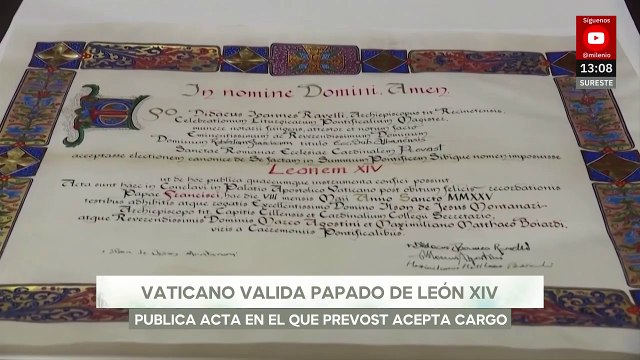 Síguenos
@milenio
13:08
SURESTE
In nomine Domini. Amen.
EGO Didacus Ioannes Ravelli, Archiepiscopus tit Recinetensis,
Celebrationum Liturgicarum Pontificalium Magister,
munere notarii fungens, attestor et notum facio
Eminentissimum ac Reverendissimum Dominum
Dominum Robertum Franciscum titulo
Sanctae Romanae Ecclesiae Cardinalem Prevost
acceptasse electionem canonice de Se factam in Summum Pontificem Sibique nomen imposuisse
Leonem XIV
ut de hoc publica quaecumque instrumenta confici possint
Acta sunt haec in Conclavi in Palatio Apostolico Vaticano post obitum felicis recordationis
Papae Francisci, hac die VIII mensis Maii Anno Sancto MMXXV
testibus adhibitis atque rogatis Excellentissimo Domino Ilson de Jesus Montanari
Archiepiscopo tit Capitis Cillensis et Cardinalium Collegii Secretario,
atque Reverendissimis Dominis Marco Agostini et Maximiliano Matthaeo Boiardi,
viris a Caeremoniis Pontificalibus.
VATICANO VALIDA PAPADO DE LEÓN XIV
PUBLICA ACTA EN EL QUE PREVOST ACEPTA CARGO